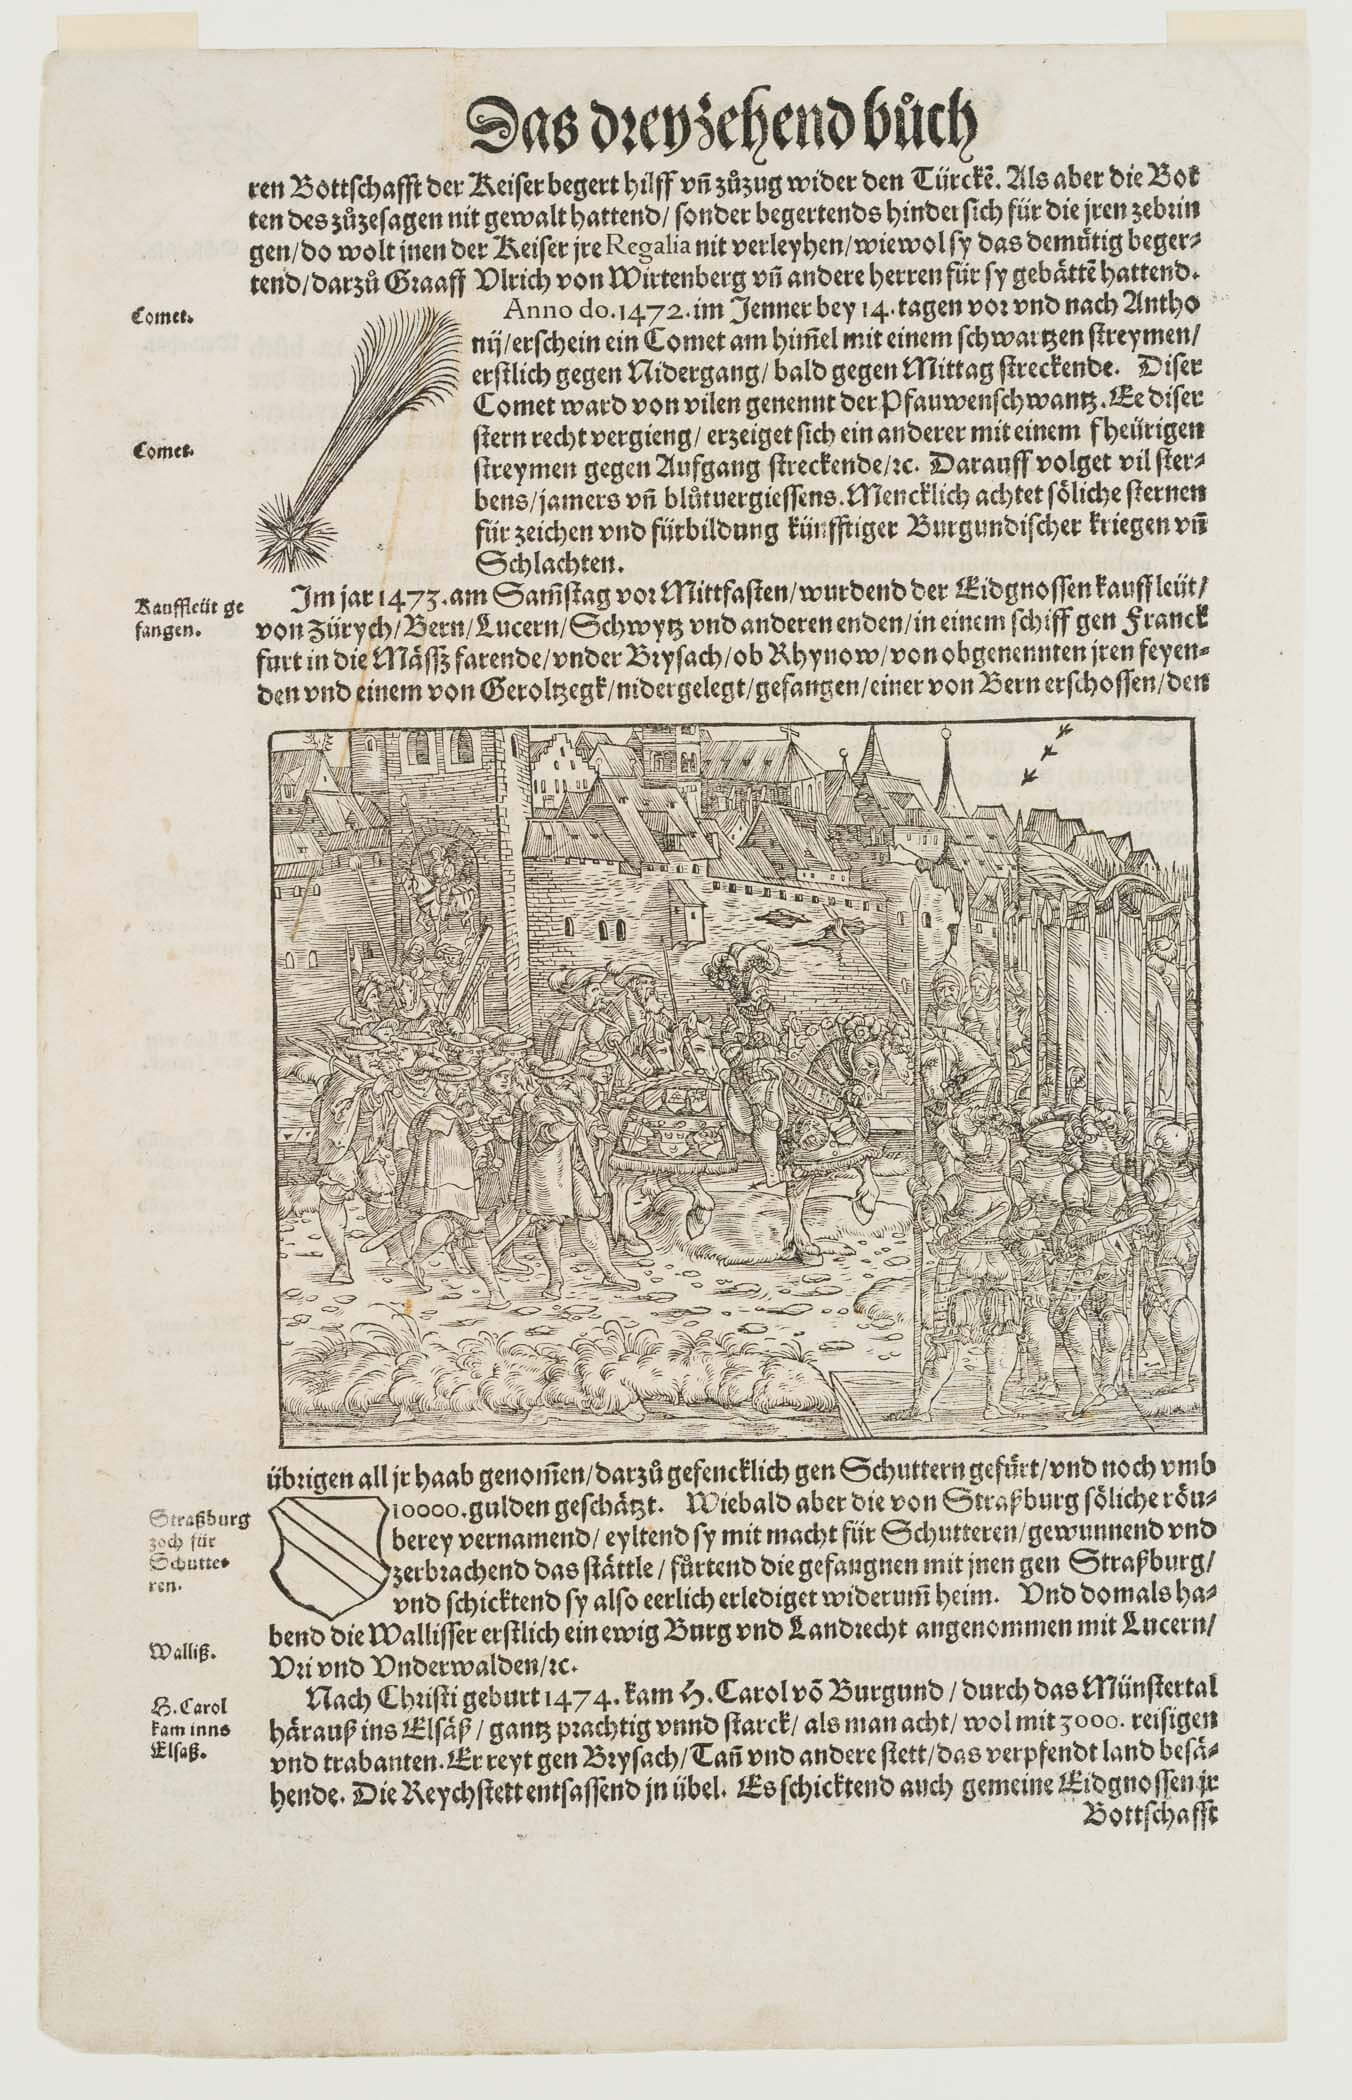 Das dreyzehend bůch
ren Bottschafft der Keiser begert hilff vñ zůzug wider den Türckẽ. Als aber die Bot
ten des zůzesagen nit gewalt hattend/ sonder begertends hinder sich für die jren zebrin
gen/ do wolt jnen der Keiser jre Regalia nit verleyhen/ wiewol sy das demütig beger-
tend/ darzů Graaff Vlrich von Wirtenberg vñ andere herren für sy gebättẽ hattend.
Comet.
Anno do. 1472. im Jenner bey 14. tagen vor vnd nach Antho
nij/ erschein ein Comet am him̃el mit einem schwartzen streymen/
erstlich gegen Nidergang/ bald gegen Mittag streckende. Diser
Comet ward von vilen genennt der Pfauwenschwantz. Ee diser
Comet.
stern recht vergieng/ erzeiget sich ein anderer mit einem fheürigen
streymen gegen Aufgang streckende/ ꝛc. Darauff volget vil ster-
bens/ jamers vñ blůtuergiessens. Mencklich achtet söliche sternen
für zeichen vnd fürbildung künfftiger Burgundischer kriegen vñ
Schlachten.
Kauffleüt ge
fangen.
Im jar 1473. am Sam̃stag vor Mittfasten/ wurdend der Eidgnossen kauffleüt/
von Zürych/ Bern/ Lucern/ Schwytz vnd anderen enden/ in einem schiff gen Franck
furt in die Mäsz farende/ vnder Brysach/ ob Rhynow/ von obgenennten jren feyen-
den vnd einem von Geroltzegk/ nidergelegt/ gefangen/ einer von Bern erschossen/ den
übrigen all jr haab genom̃en/ darzů gefencklich gen Schuttern gefürt/ vnd noch vmb
Straßburg
zoch für
Schutte-
ren.
10000. gulden geschätzt. Wiebald aber die von Straßburg söliche röu-
berey vernamend/ eyltend sy mit macht für Schutteren/ gewunnend vnd
zerbrachend das stättle/ fürtend die gefangnen mit jnen gen Straßburg/
vnd schicktend sy also eerlich erlediget widerum̃ heim. Vnd domals ha-
bend die Wallisser erstlich ein ewig Burg vnd Landrecht angenommen mit Lucern/
Walliß.
Vri vnd Vnderwalden/ ꝛc.
H. Carol
kam inns
Elsaß.
Nach Christi geburt 1474. kam H. Carol võ Burgund/ durch das Münstertal
härauß ins Elsäß/ gantz prachtig vnnd starck/ als man acht/ wol mit 3000. reisigen
vnd trabanten. Er reyt gen Brysach/ Tañ vnd andere stett/ das verpfendt land besä-
hende. Die Reychstett entsassend jn übel. Es schicktend auch gemeine Eidgnossen jr
Bottschafft